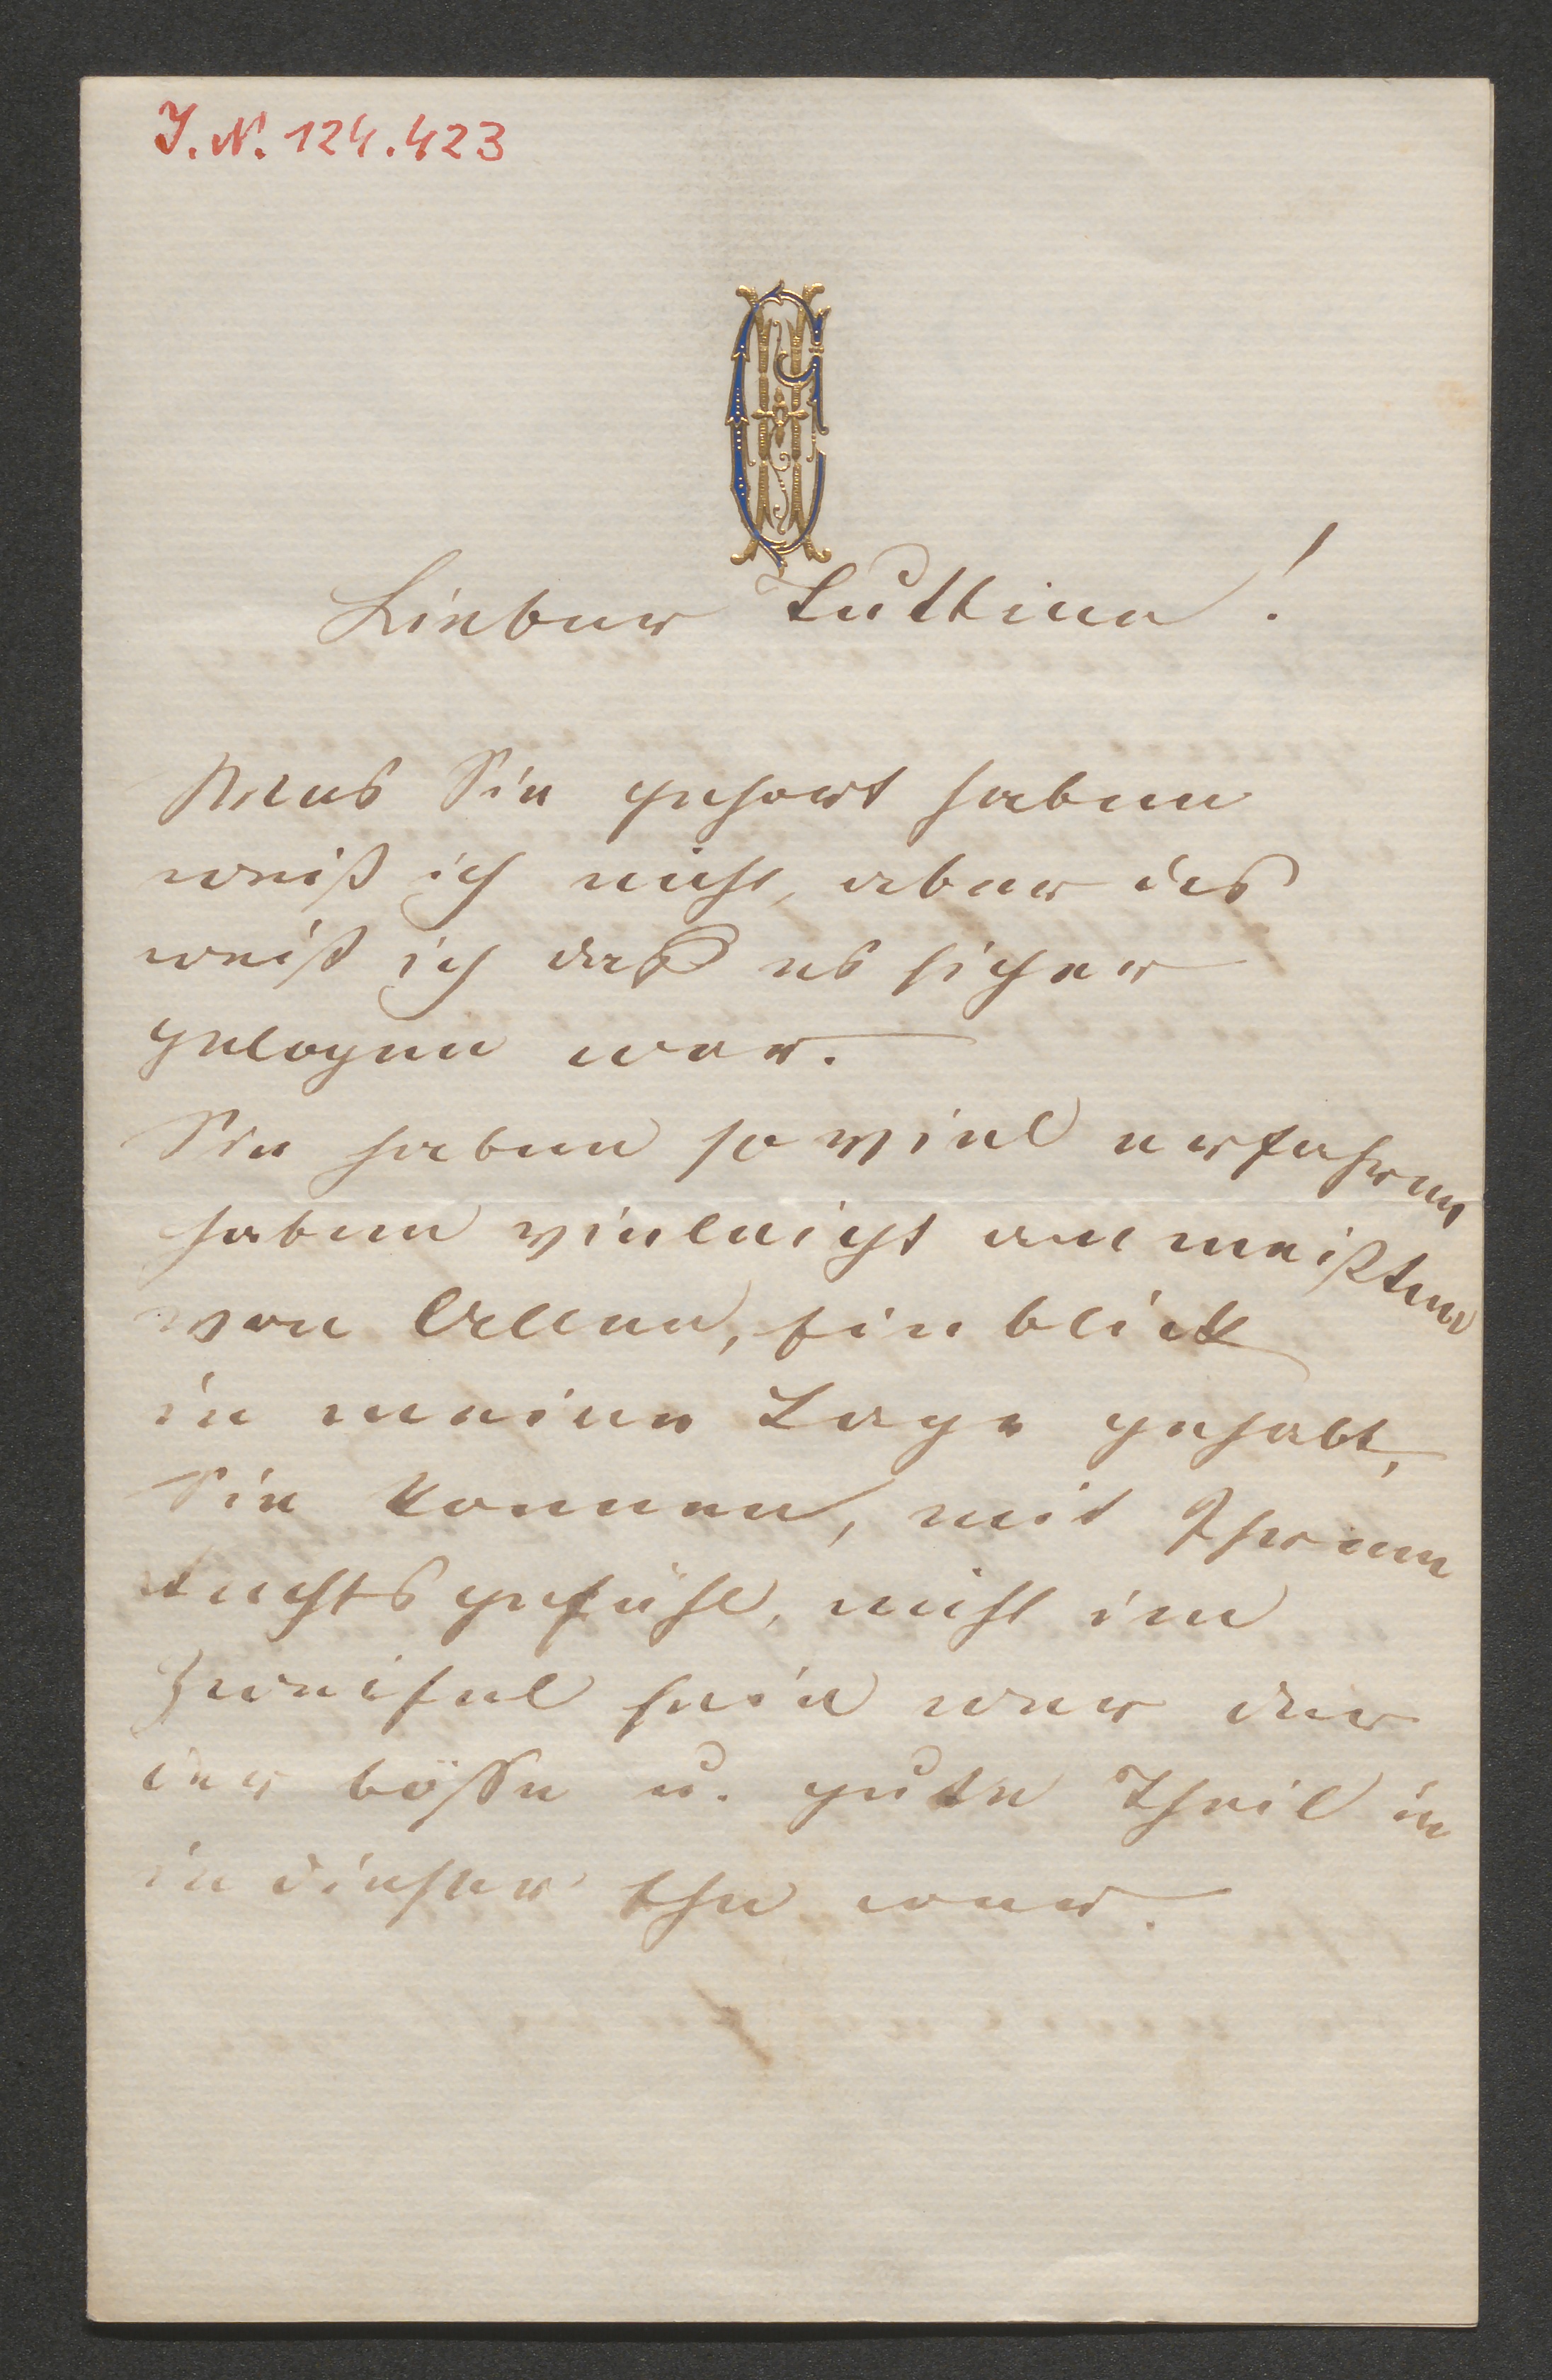 J. N. 124.423
Lieber Luttina!
Was Sie gehört haben
weiß ich nicht, aber das
weiß ich daß es sicher
gelogen war.
Sie haben so viel erfahren
haben vieleicht am meißten
von Allen, Einblick
in meine Lage gehabt,
Sie konnen, mit Ihrem
Rechtsgefühl, nicht im
Zweifel sein wer der
der bösse u. gute Theil in
in dieser Ehe war.